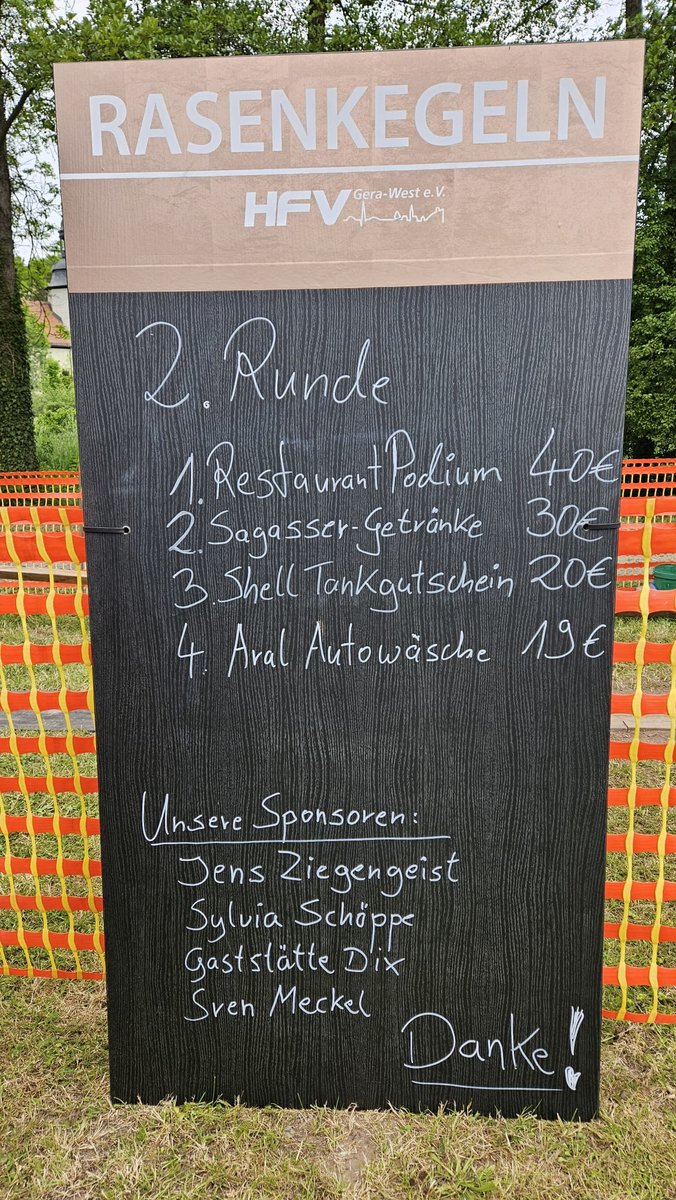 RASENKEGELN
HFV Gera-West e.V.
2. Runde
1. Restaurant Podium 40€
2. Sagasser-Getränke 30€
3. Shell Tankgutschein 20€
4. Aral Autowäsche 19€
Unsere Sponsoren:
Jens Ziegengeist
Sylvia Schöppe
Gaststätte Dix
Sven Meckel
Danke!